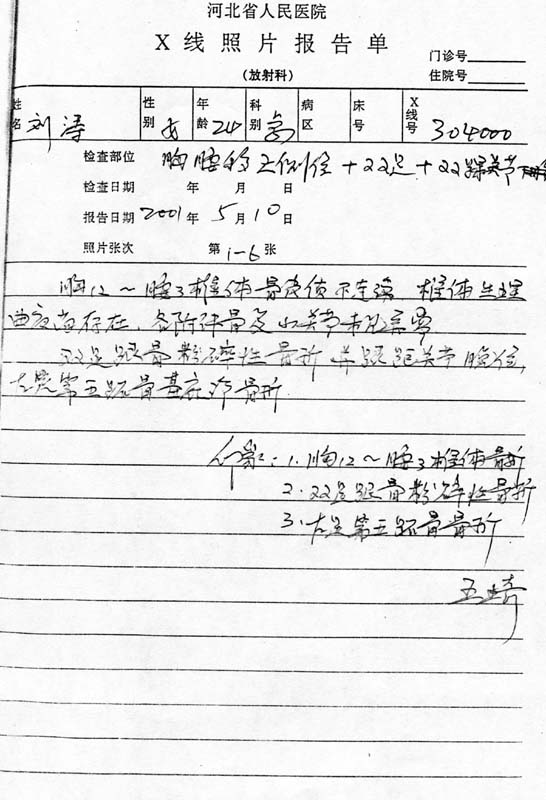 河北省人民医院
X 线 照 片 报 告 单
(放射科)
门诊号
住院号
姓名 刘涛 性别 女 年龄 24 科别 病区 床号 X线号 304000
检查部位 胸腰移正侧位+双足+双踝关节
检查日期 年 月 日
报告日期 2001 年 5 月 10 日
照片张次 第 1-6 张
胸12~腰3椎体骨皮质不连续 椎体生理
曲度尚存在,各附件骨及小关节未见异常
双足跟骨粉碎性骨折 并跟距关节脱位,
左足第五跖骨基底部骨折
印象:1.胸12~腰3椎体骨折
2.双足跟骨粉碎性骨折
3.左足第五跖骨骨折